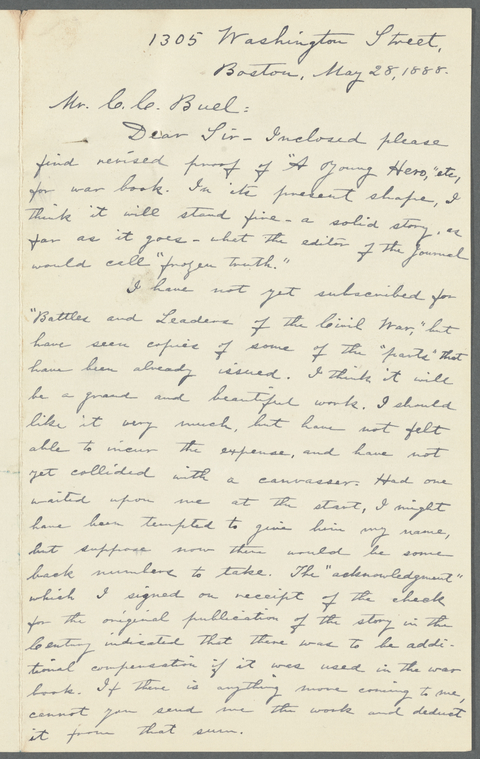 1305 Washington Street,
Boston, May 28, 1888.
Mr. C. C. Buel:
Dear Sir - Inclosed please
find revised proof of "A Young Hero," etc,
for war book. In its present shape, I
think it will stand fire - a solid story, as
far as it goes - what the editor of the Journal
would call "frozen truth."
I have not yet subscribed for
"Battles and Leaders of the Civil War," but
have seen copies of some of the "parts" that
have been already issued. I think it will
be a grand and beautiful work. I should
like it very much, but have not felt
able to incur the expense, and have not
yet collided with a canvasser. Had one
waited upon me at the start, I might
have been tempted to give him my name,
but suppose now there would be some
back numbers to take. The "acknowledgment"
which I signed on receipt of the check
for the original publication of the story in the
Century indicated that there was to be addi-
tional compensation if it was used in the war
book. If there is anything more coming to me,
cannot you send me the work and deduct
it from that sum.